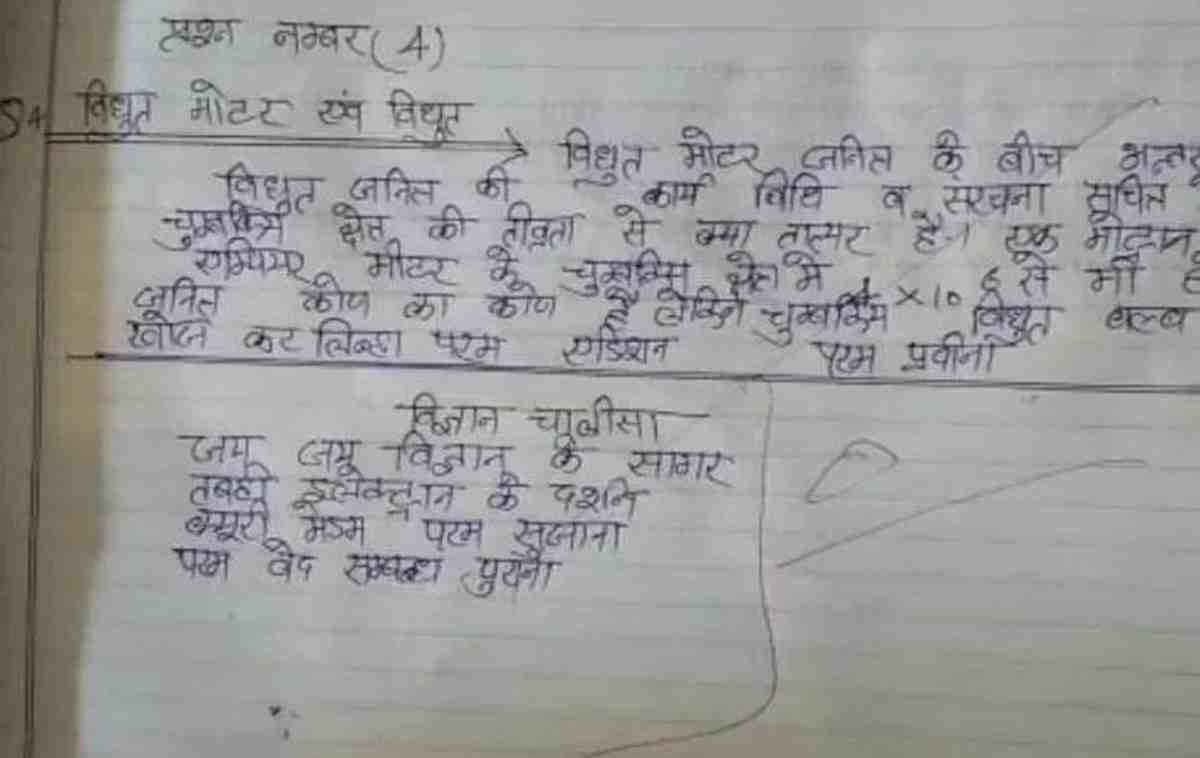 प्रश्न नम्बर (4)
विधुत मोटर एवं विधुत
विधुत मोटर जनित्र के बीच
विधुत जनित्र की कार्य विधि व संरचना सूचित
चुम्बकिय क्षेत्र की तीव्रता से क्या तात्पर है। एक
मीटर के चुम्बकिय क्षेत्र में × 10 6 से मी
जनित्र कोण का कोण है लेकिन चुम्बकिय विधुत बल्ब
खोज कर लिन्हा परम एडिशन परम प्रवीना
विज्ञान चालीसा
जय जय विज्ञान के सागर
तबही इलेक्ट्रान के दर्शन
क्यूरी मैडम परम सुजाना
परम वेद सम्बन्ध पुराना